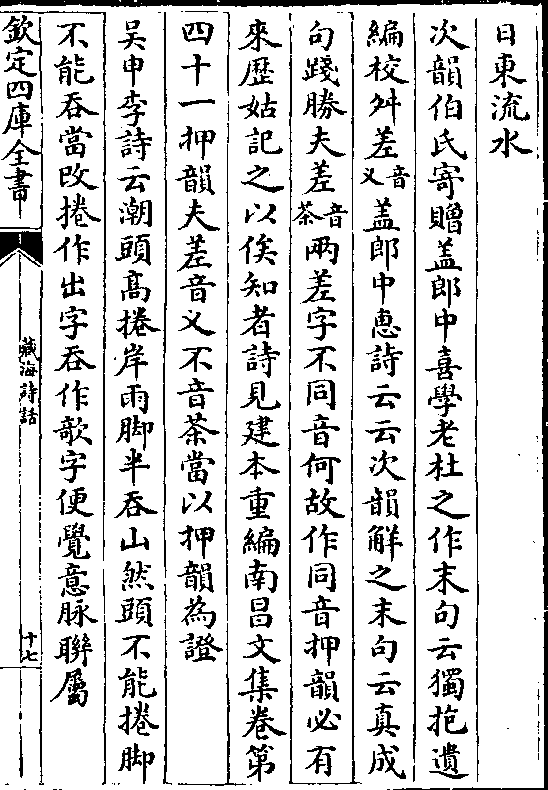 日東流水
次韻伯氏寄贈盖郎中喜學老杜之作末句云獨抱遺
編校舛差音义盖郎中惠詩云云次韻解之末句云真成
句踐勝夫差音茶兩差字不同音何故作同音押韻必有
來歷姑記之以俟知者詩見建本重編南昌文集卷第
四十一押韻夫差音义不音茶當以押韻為證
吴申李詩云潮頭髙捲岸雨脚半吞山然頭不能捲脚
不能吞當改捲作出字吞作欹字便覺意脉聨屬
欽定四庫全書
藏海詩話
十七